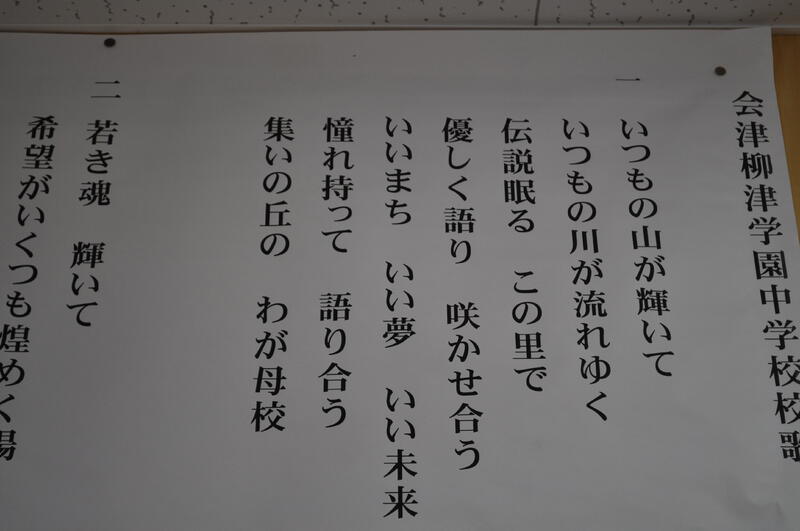 会津柳津学園中学校校歌
一
いつもの山が輝いて
いつもの川が流れゆく
伝説眠る この里で
優しく語り 咲かせ合う
いいまち いい夢 いい未来
憧れ持って 語り合う
集いの丘の わが母校
二
若き魂 輝いて
希望がいくつも煌めく場